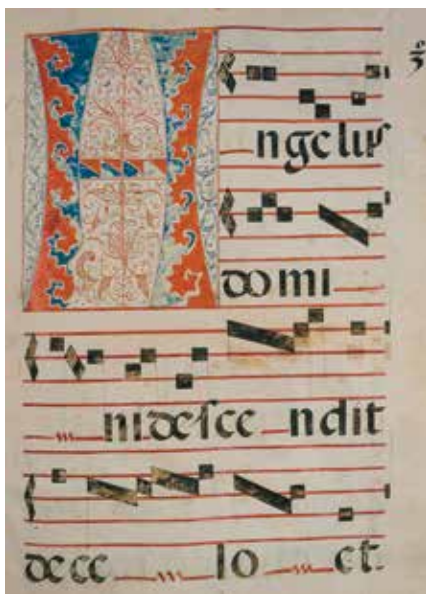 Angelus
domi
ni descendit
de ce lo et.